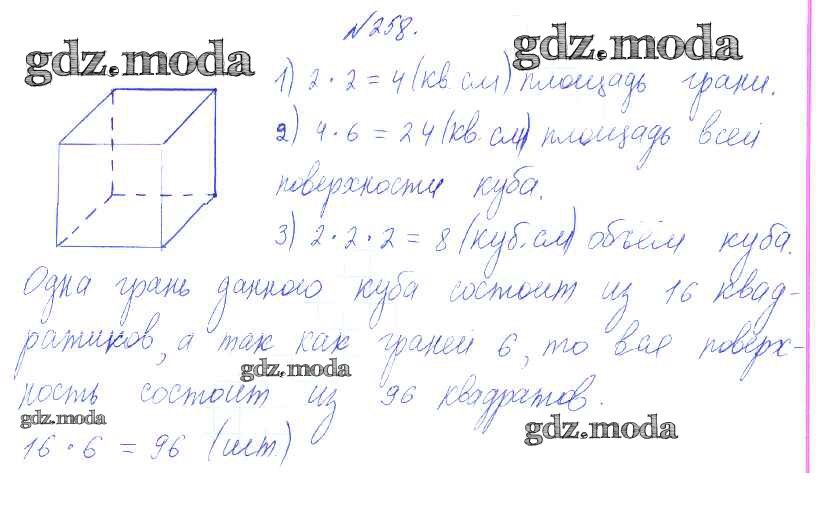 №258.
gdz.moda gdz.moda
1) 2 · 2 = 4 (кв. см) площадь грани.
2) 4 · 6 = 24 (кв. см) площадь всей
поверхности куба.
3) 2 · 2 · 2 = 8 (куб. см) объём куба.
Одна грань данного куба состоит из 16 квад-
ратиков, а так как граней 6, то вся поверх-
gdz.moda
ность состоит из 96 квадратов.
gdz.moda gdz.moda
16 · 6 = 96 (шт.)